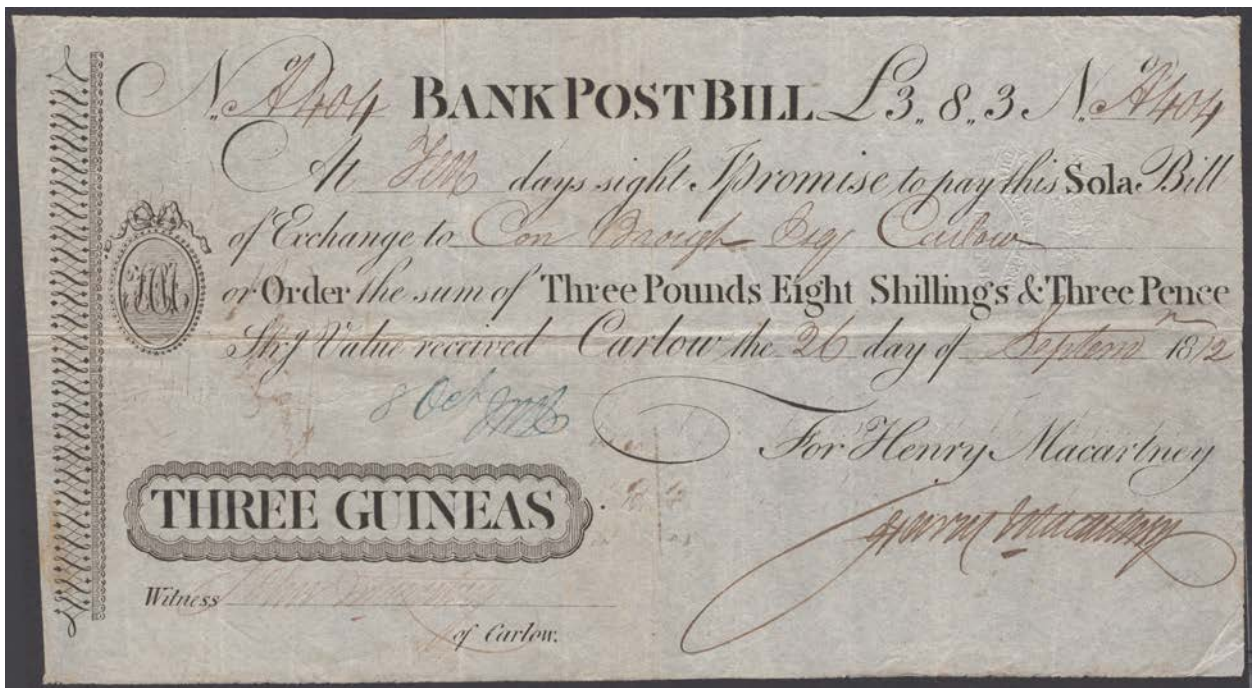 No. A404 BANK POST BILL £3,, 8,, 3 No. A404
At Ten days sight I promise to pay this Sola Bill
of Exchange to Con Brough Esq Carlow
or Order the sum of Three Pounds Eight Shillings & Three Pence
Strg Value received Carlow the 26 day of Septem 1812
8 Oct
For Henry Macartney
THREE GUINEAS
Henry Macartney
Witness
of Carlow.